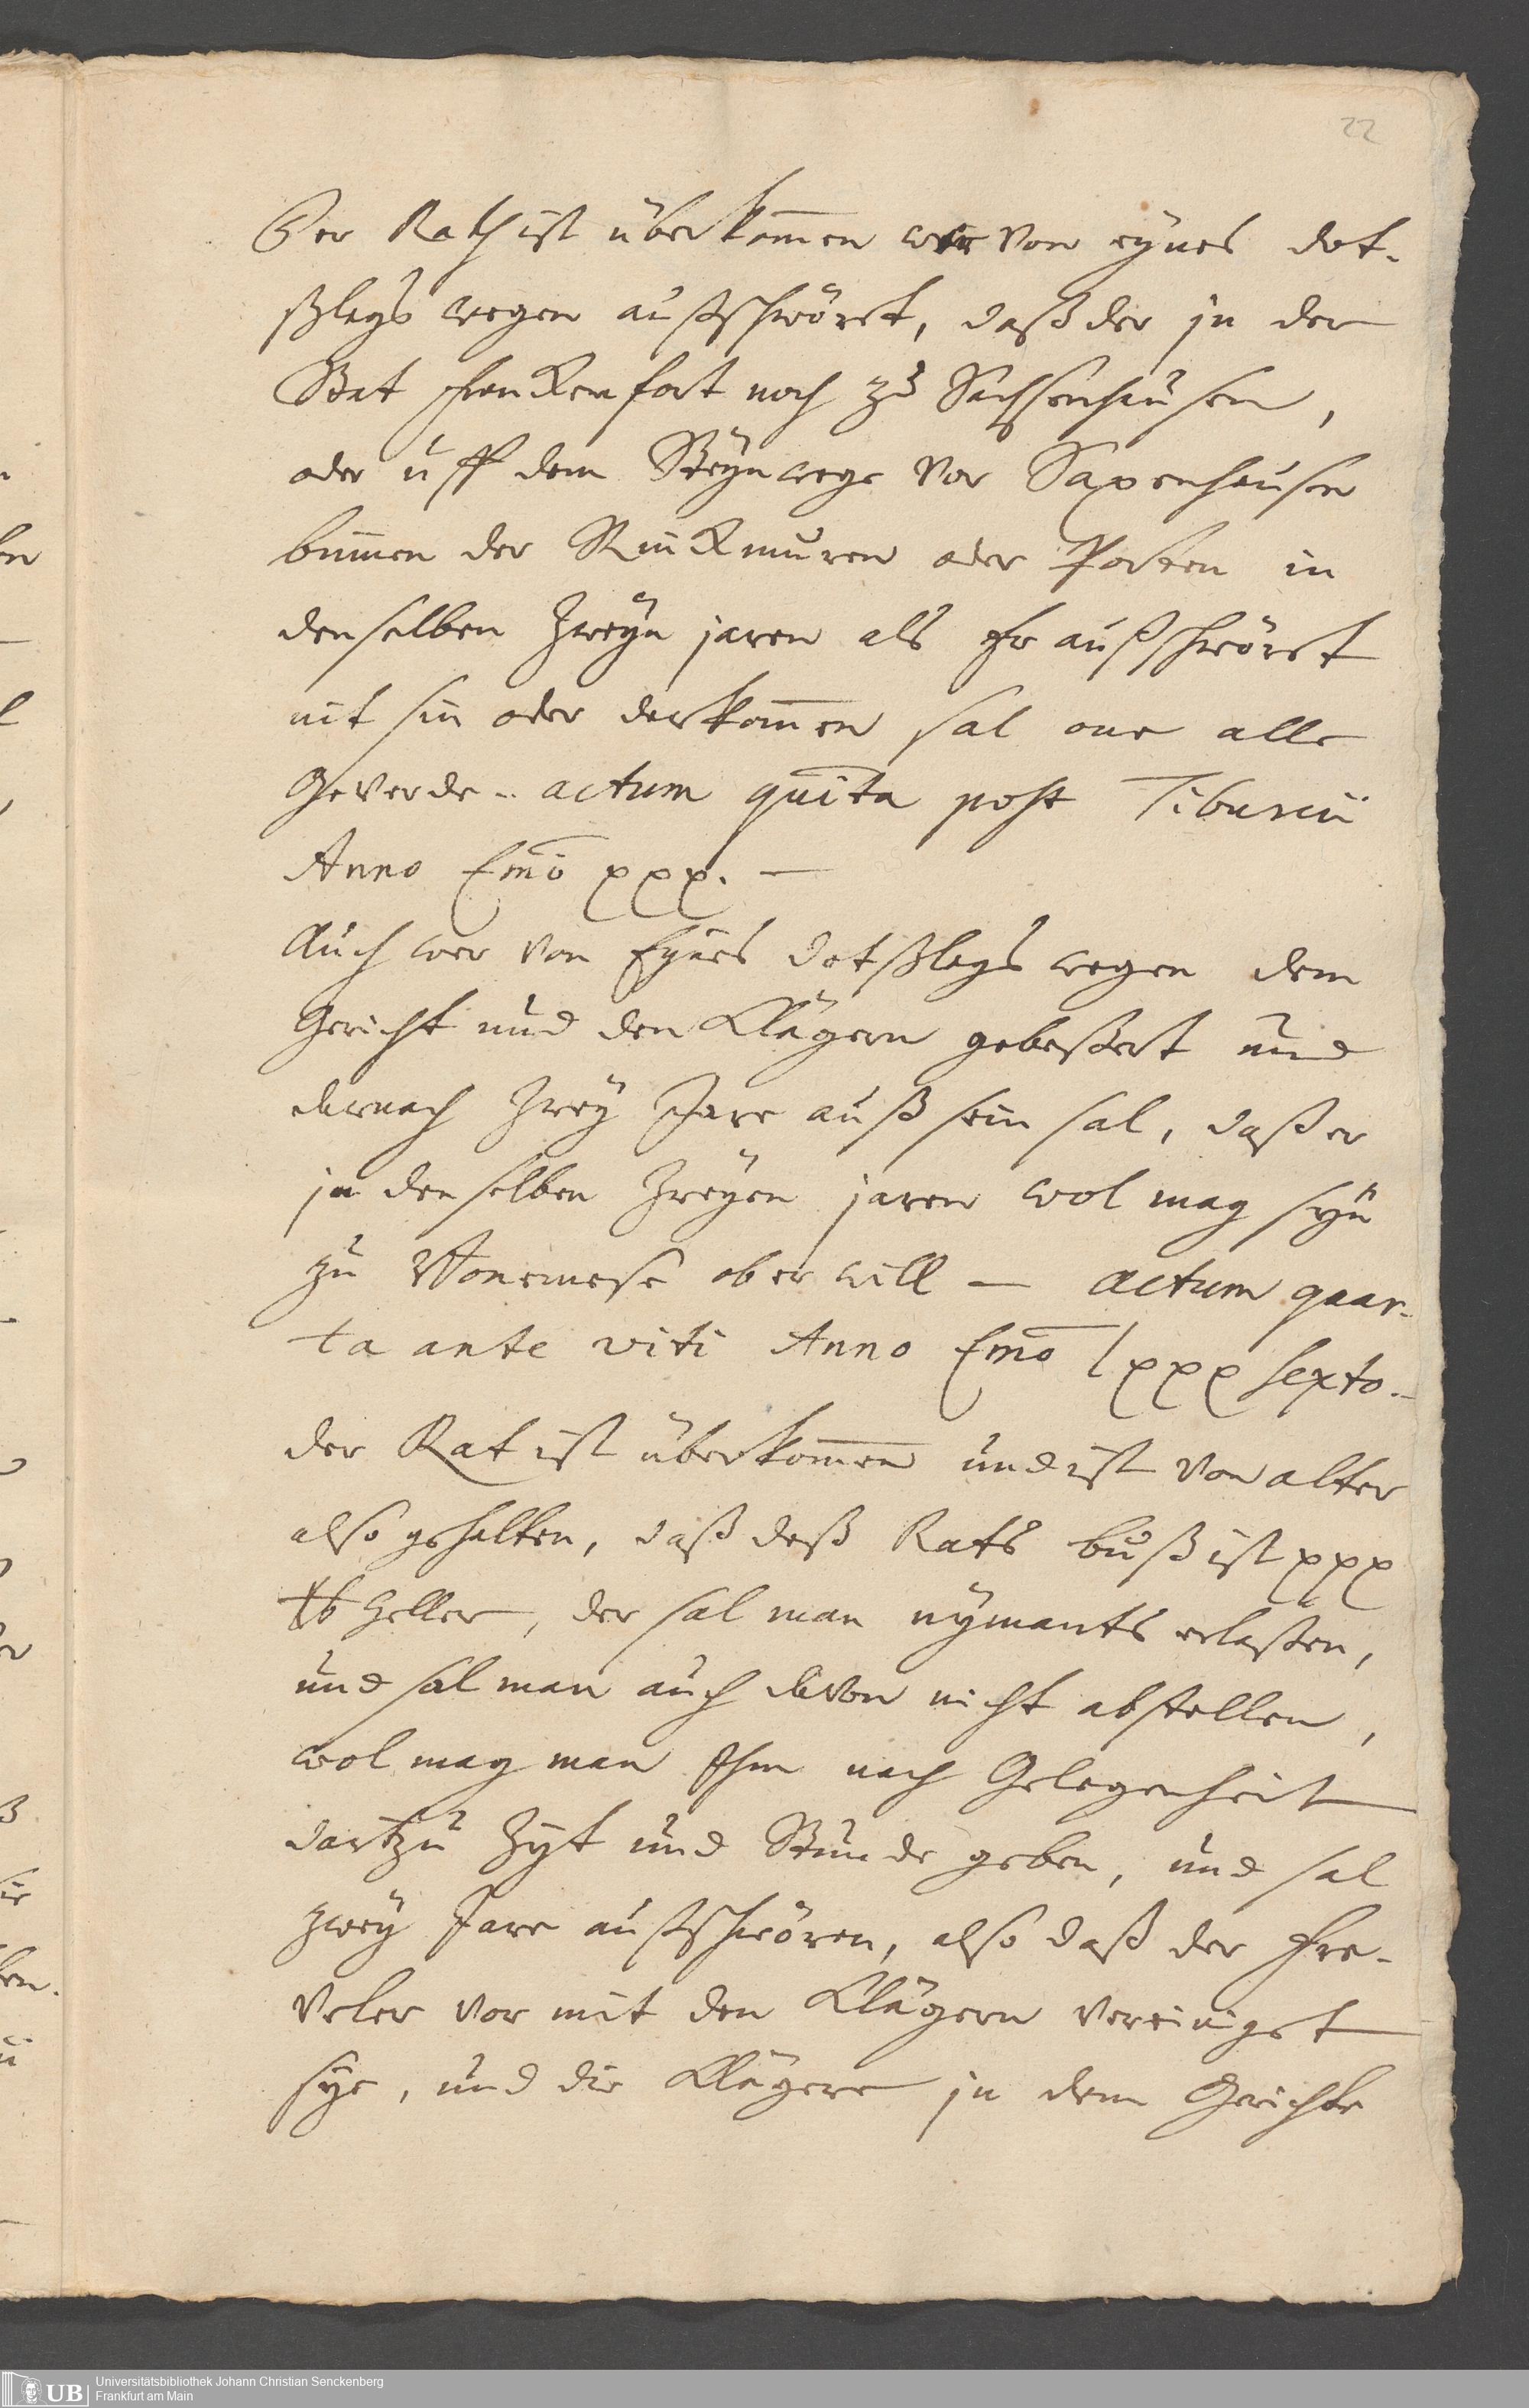 22
Der Rath ist überkom̅en wer von eynes dot-
ßlags wegen außschwöret, daß der in der
Stat Franckenfort noch zu Sachssenhausen,
oder uff dem Steynwege vor Saxenhausen
bin̅en der Rinckmuren oder Porten in
denselben zweyn jaren als Er außschwöret
nit sin oder darkom̅en sal one alle
Geverde - actum quin̅ta post Tiburcii
Anno Cm̅o xxx. —
Auch wer von Eynes dotßlags wegen dem
Gericht und den Klägern gebeßert und
darnach zwey Jare auß sein sal, daß er
in denselben zweyen jaren wol mag syn
zu Vonemese ob er will — actum quar-
ta ante viti Anno Cm̅o lxxx sexto-
der Rat ist überkom̅en und ist von alter
also gehalten, daß deß Rats buß ist xxx
℔ Heller, der sal man nymants erlaßen,
und sal man auch davon nicht abstellen,
wol mag man Ihm nach Gelegenheit
dartzu Zyt und Stunde geben, und sal
zwey Jare außschwören, also daß der Fre-
veler vor mit den Klägern vereiniget
sye, und die Klägere in dem Gerichte
UB Universitätsbibliothek Johann Christian Senckenberg
Frankfurt am Main